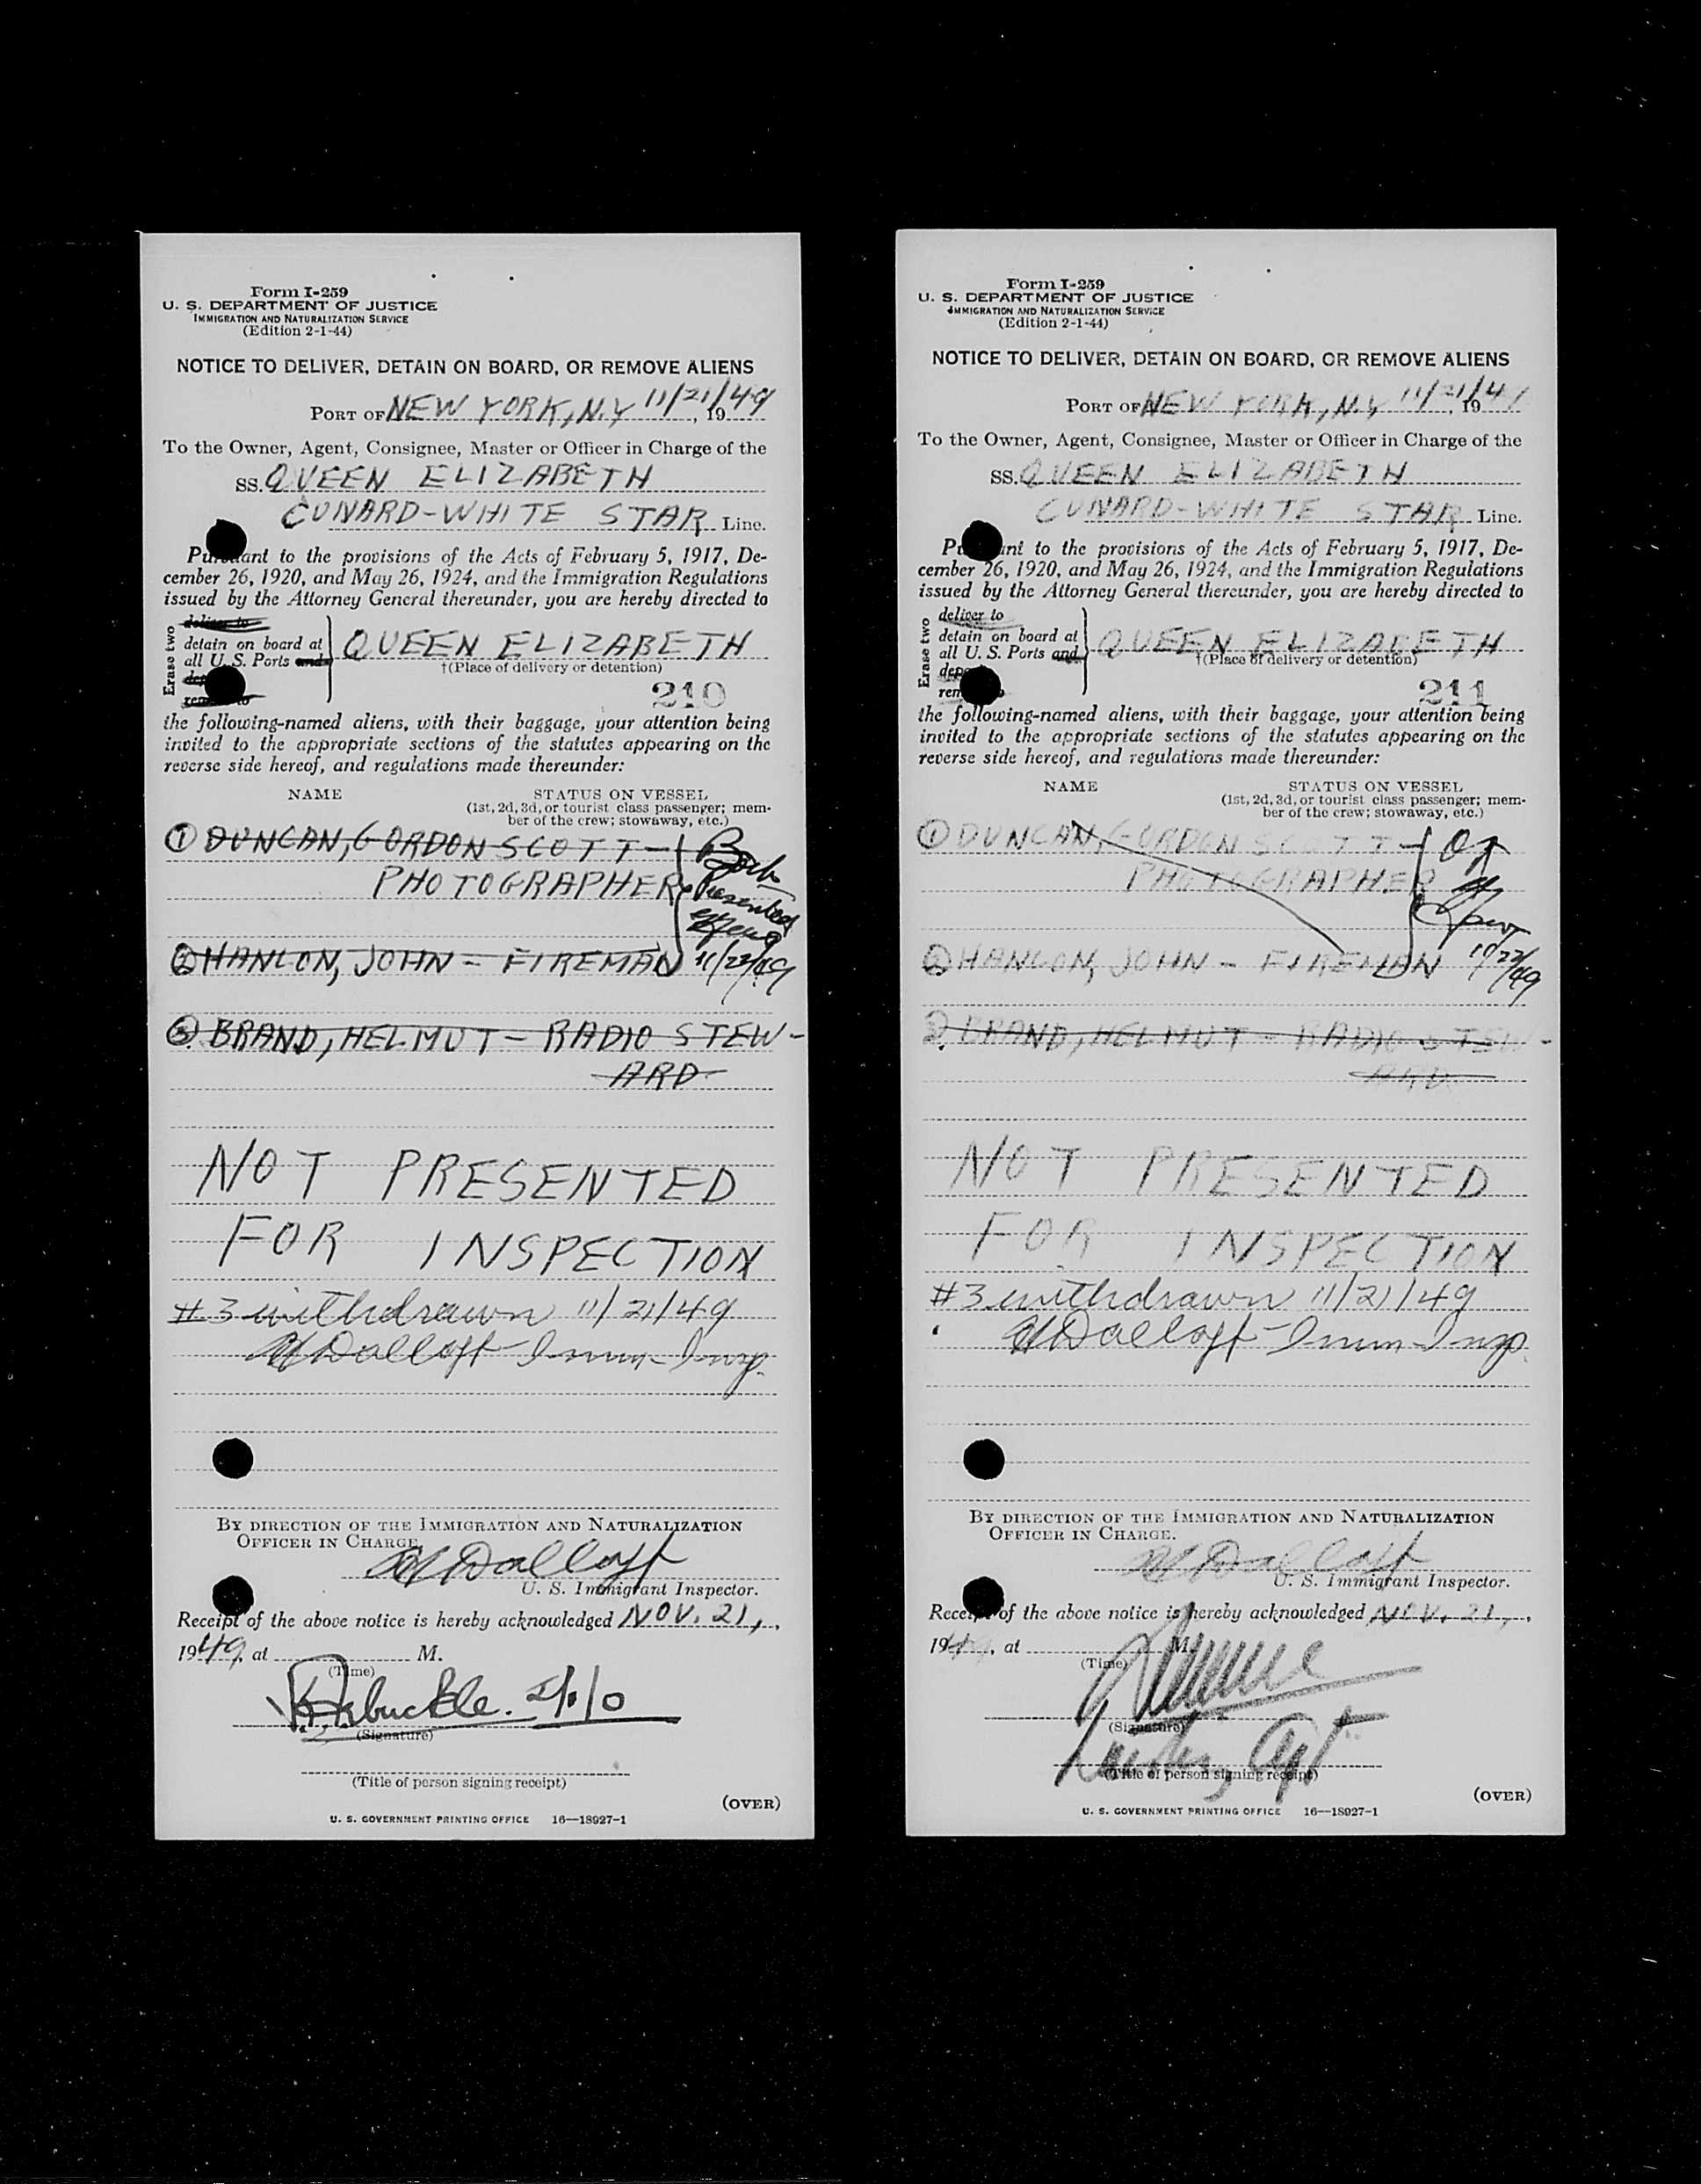 Form I-259
U. S. DEPARTMENT OF JUSTICE
IMMIGRATION AND NATURALIZATION SERVICE
(Edition 2-1-44)
NOTICE TO DELIVER, DETAIN ON BOARD, OR REMOVE ALIENS
PORT OF NEW YORK, N.Y 11/21/49, 19
To the Owner, Agent, Consignee, Master or Officer in Charge of the
SS. QUEEN ELIZABETH
CUNARD-WHITE STAR Line.
Pursuant to the provisions of the Acts of February 5, 1917, De-
cember 26, 1920, and May 26, 1924, and the Immigration Regulations
issued by the Attorney General thereunder, you are hereby directed to
Erase two
deliver to
detain on board at
all U. S. Ports and
remove to
QUEEN ELIZABETH
†(Place of delivery or detention)
210
the following-named aliens, with their baggage, your attention being
invited to the appropriate sections of the statutes appearing on the
reverse side hereof, and regulations made thereunder:
NAME STATUS ON VESSEL
(1st, 2d, 3d, or tourist class passenger; mem-
ber of the crew; stowaway, etc.)
① DUNCAN, GORDON SCOTT - Both
PHOTOGRAPHER Presented
② HANLON, JOHN - FIREMAN 11/22/49
③ BRAND, HELMUT - RADIO STEW-
ARD
NOT PRESENTED
FOR INSPECTION
#3 withdrawn 11/21/49
Dalloff - Imm - Insp.
BY DIRECTION OF THE IMMIGRATION AND NATURALIZATION
OFFICER IN CHARGE.
Dalloff
U. S. Immigrant Inspector.
Receipt of the above notice is hereby acknowledged NOV. 21,,
1949, at M.
(Time)
Arbuckle.
(Signature)
(Title of person signing receipt)
(OVER)
U. S. GOVERNMENT PRINTING OFFICE 16—18927-1
Form I-259
U. S. DEPARTMENT OF JUSTICE
IMMIGRATION AND NATURALIZATION SERVICE
(Edition 2-1-44)
NOTICE TO DELIVER, DETAIN ON BOARD, OR REMOVE ALIENS
PORT OF NEW YORK, N.Y 11/21/49, 19
To the Owner, Agent, Consignee, Master or Officer in Charge of the
SS. QUEEN ELIZABETH
CUNARD-WHITE STAR Line.
Pursuant to the provisions of the Acts of February 5, 1917, De-
cember 26, 1920, and May 26, 1924, and the Immigration Regulations
issued by the Attorney General thereunder, you are hereby directed to
Erase two
deliver to
detain on board at
all U. S. Ports and
remove to
QUEEN ELIZABETH
†(Place of delivery or detention)
211
the following-named aliens, with their baggage, your attention being
invited to the appropriate sections of the statutes appearing on the
reverse side hereof, and regulations made thereunder:
NAME STATUS ON VESSEL
(1st, 2d, 3d, or tourist class passenger; mem-
ber of the crew; stowaway, etc.)
① DUNCAN, GORDON SCOTT -
PHOTOGRAPHER
② HANLON, JOHN - FIREMAN 11/22/49
③ BRAND, HELMUT - RADIO STEW-
ARD
NOT PRESENTED
FOR INSPECTION
#3 withdrawn 11/21/49
Dalloff - Imm - Insp.
BY DIRECTION OF THE IMMIGRATION AND NATURALIZATION
OFFICER IN CHARGE.
Dalloff
U. S. Immigrant Inspector.
Receipt of the above notice is hereby acknowledged NOV. 21,,
1949, at M.
(Time)
(Signature)
(Title of person signing receipt)
(OVER)
U. S. GOVERNMENT PRINTING OFFICE 16—18927-1